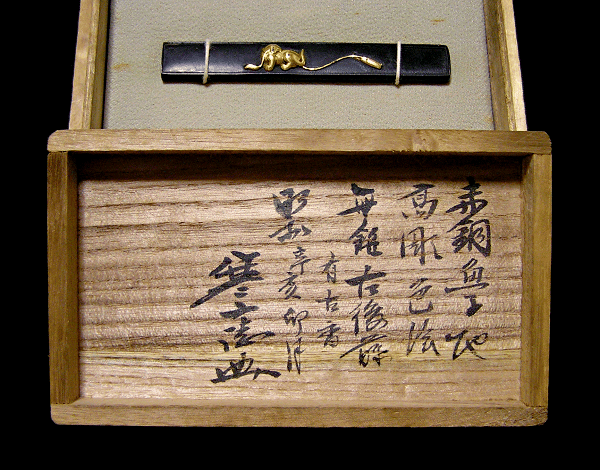 赤銅魚子地
高彫色絵
無銘古後藤
有古香
昭和辛亥卯月
寒山誌